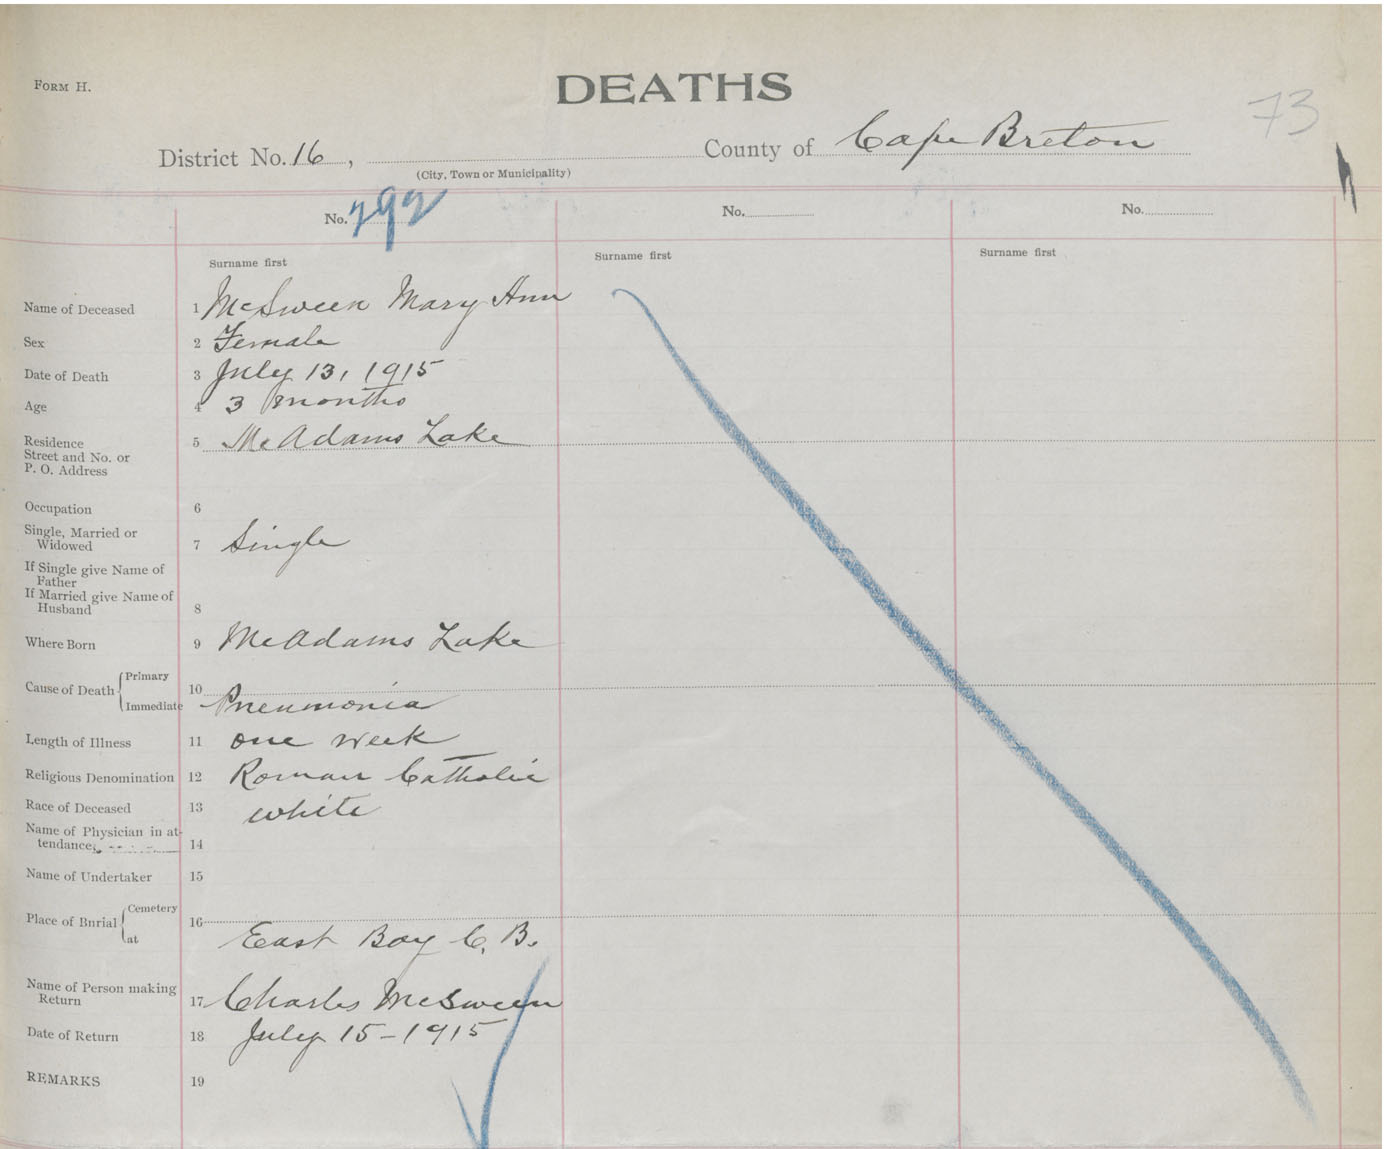 FORM H.
DEATHS
73
District No. 16, County of Cape Breton
(City, Town or Municipality)
No. 292 No. No.
Surname first Surname first Surname first
Name of Deceased 1 McSween Mary Ann
Sex 2 Female
Date of Death 3 July 13, 1915
Age 4 3 months
Residence 5 McAdams Lake
Street and No. or
P. O. Address
Occupation 6
Single, Married or
Widowed 7 Single
If Single give Name of
Father
If Married give Name of
Husband 8
Where Born 9 McAdams Lake
Cause of Death Primary 10
Immediate Pneumonia
Length of Illness 11 one week
Religious Denomination 12 Roman Catholic
Race of Deceased 13 white
Name of Physician in at-
tendance 14
Name of Undertaker 15
Place of Bnrial Cemetery 16
at East Bay C. B.
Name of Person making
Return 17 Charles McSween
Date of Return 18 July 15-1915
REMARKS 19